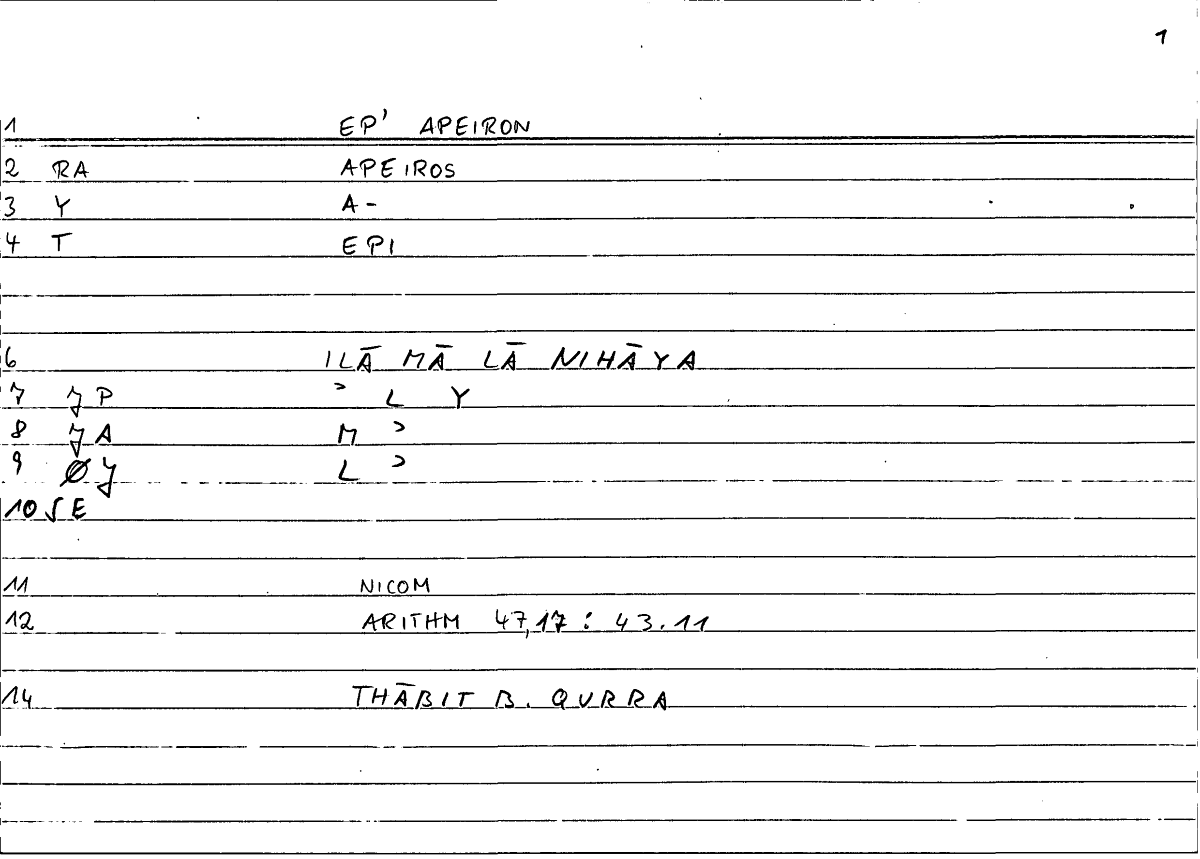 1
1 EP' APEIRON
2 RA APEIROS
3 Y A-
4 T EPI
6 ILĀ MĀ LĀ NIHĀYA
7 JP ʾ L Y
8 JA M ʾ
9 ØJ L ʾ
10 SE
11 NICOM
12 ARITHM 47,17 : 43.11
14 THĀBIT B. QURRA